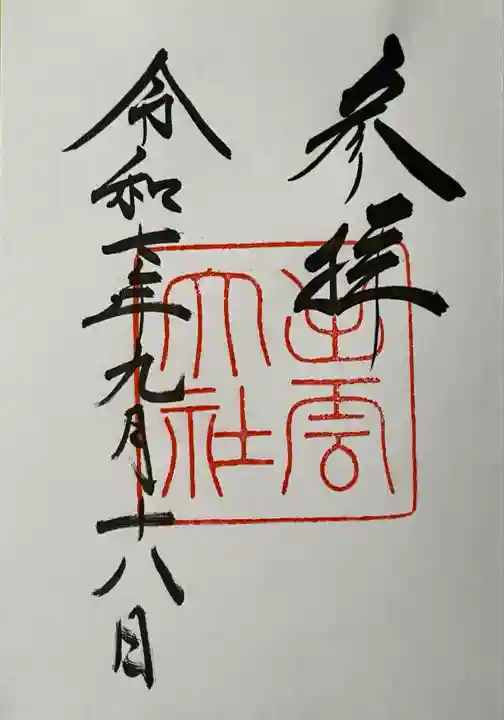 参拝
出雲
大社
令和年九月十八日